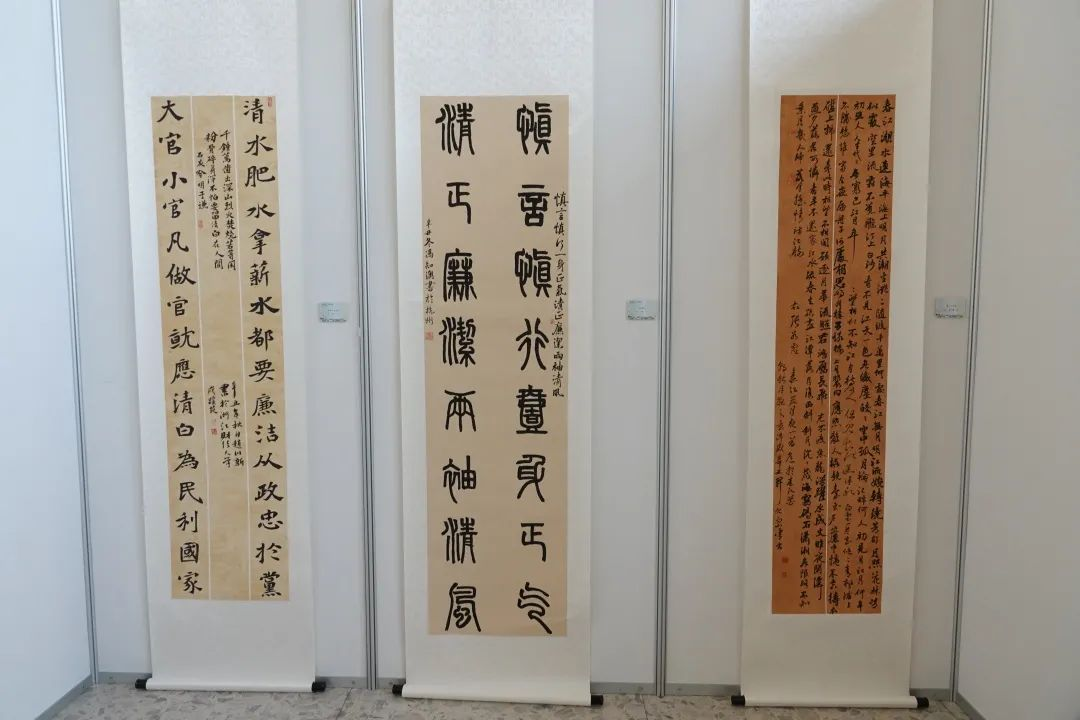 清水肥水拿薪水都要廉洁从政忠於黨
千錘萬鑿出深山烈火焚燒若等閒
粉骨碎身渾不怕要留清白在人間
石灰吟 明 于謙
辛丑年秋月趙以新
書於浙江財經大學
大官小官凡做官就應清白為民利國家
慎言慎行壹身正气
慎言慎行一身正氣清正廉潔兩袖清風
清正廉潔兩袖清風
辛丑冬馮知淵書於杭州
春江潮水連海平海上明月共潮生灩〻隨波千萬里何處春江無月明江流婉轉繞芳甸月照花林皆
似霰空里流霜不覺飛汀上白沙看不見江天一色無纖塵皎〻空中孤月輪江畔何人初見月江月何年
初照人人生代〻無窮已江月年〻望相似不知江月待何人但見長江送流水白雲一片去悠〻青楓浦上
不勝愁誰家今夜扁舟子何處相思明月樓可憐樓上月裴回應照離人妝鏡臺玉户簾中捲不去搗衣
砧上拂還來此時相望不相聞願逐月華流照君鴻雁長飛光不度魚龍潛躍水成文昨夜閑潭夢
落花可憐春半不還家江水流春去欲盡江潭落月復西斜斜月沉〻藏海霧碣石瀟湘無限路不知
乘月幾人歸落月搖情滿江樹